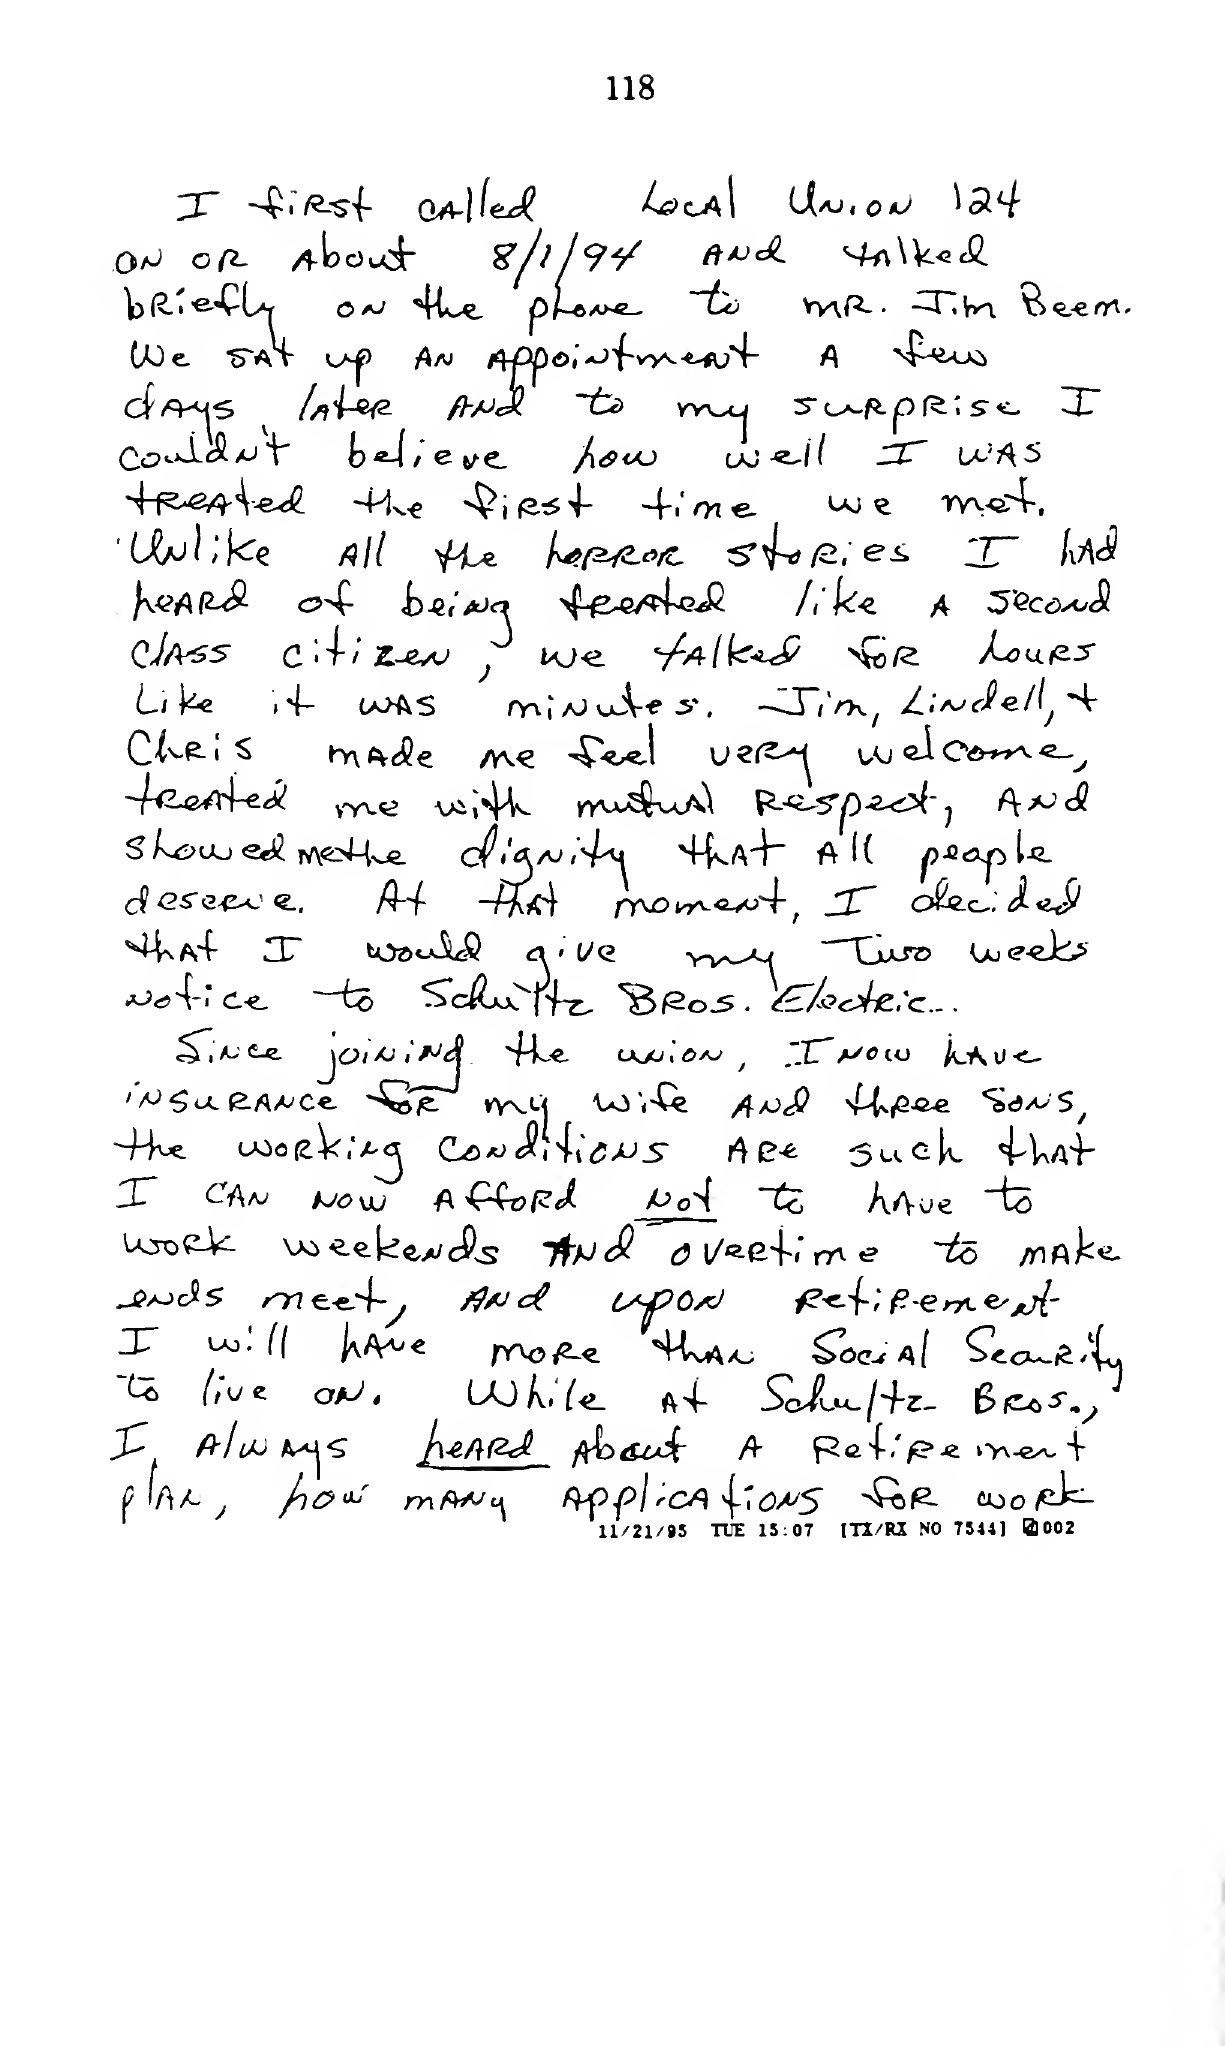 118
I first called Local Union 124
on or about 8/1/94 and talked
briefly on the phone to Mr. Jim Beem.
We sat up an appointment a few
days later and to my surprise I
couldn't believe how well I was
treated the first time we met.
Unlike all the horror stories I had
heard of being treated like a second
class citizen, we talked for hours
like it was minutes. Jim, Lindell, +
Chris made me feel very welcome,
treated me with mutual respect, and
showed me the dignity that all people
deserve. At that moment, I decided
that I would give my two weeks
notice to Schultz Bros. Electric...
Since joining the union, I now have
insurance for my wife and three sons,
the working conditions are such that
I can now afford not to have to
work weekends and overtime to make
ends meet, and upon retirement
I will have more than Social Security
to live on. While at Schultz Bros.,
I always heard about a retirement
plan, how many applications for work
11/21/95 TUE 15:07 [TX/RX NO 7544] 002